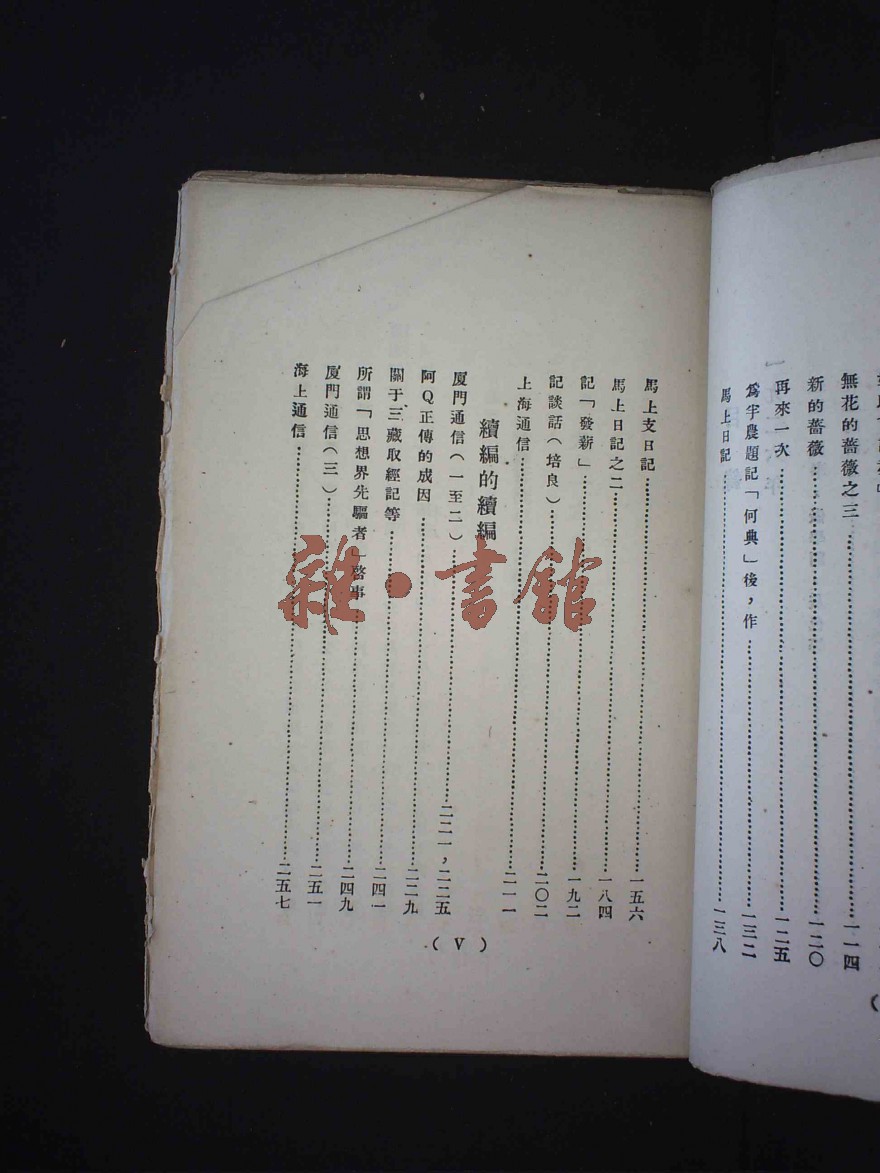 無花的薔薇之三……一一四
新的薔薇……一二〇
再來一次……一二五
爲半農題記「何典」後,作……一三二
馬上日記……一三八
馬上支日記……一五六
馬上日記之二……一八四
記「發薪」……一九二
記談話(培良)……二〇二
上海通信……二一一
續編的續編
廈門通信(一至二)……二二一,二二五
阿Q正傳的成因……二二九
關于三藏取經記等……二四一
所謂「思想界先驅者」啓事……二四九
廈門通信(三)……二五一
海上通信……二五七
(V)
雜·書館